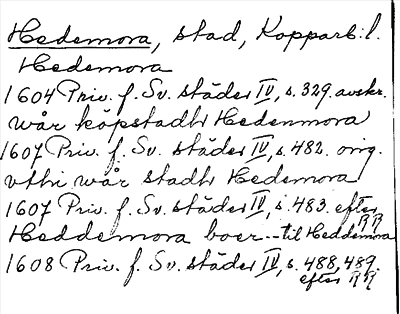 Hedemora, stad, Kopparb:l.
Hedemora
1604 Priv. f. Sv. städer IV, s. 329. avskr.
wår köpstadh Hedenmora
1607 Priv. f. Sv. städer IV, s. 482. orig.
vthi wår stadh Hedemora
1607 Priv. f. Sv. städer IV, s. 483. efter RR
Heddemora boer -- til Heddemora
1608 Priv. f. Sv. städer IV, s. 488, 489.
efter RR